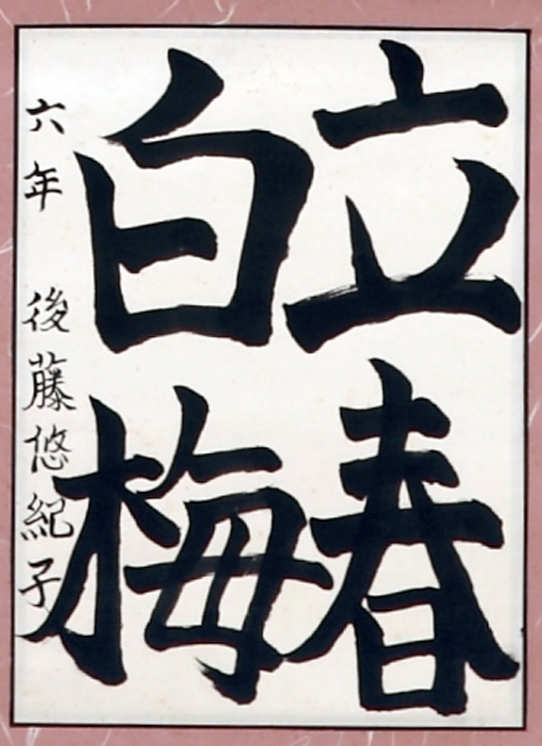 立春
白梅
六年 後藤悠紀子